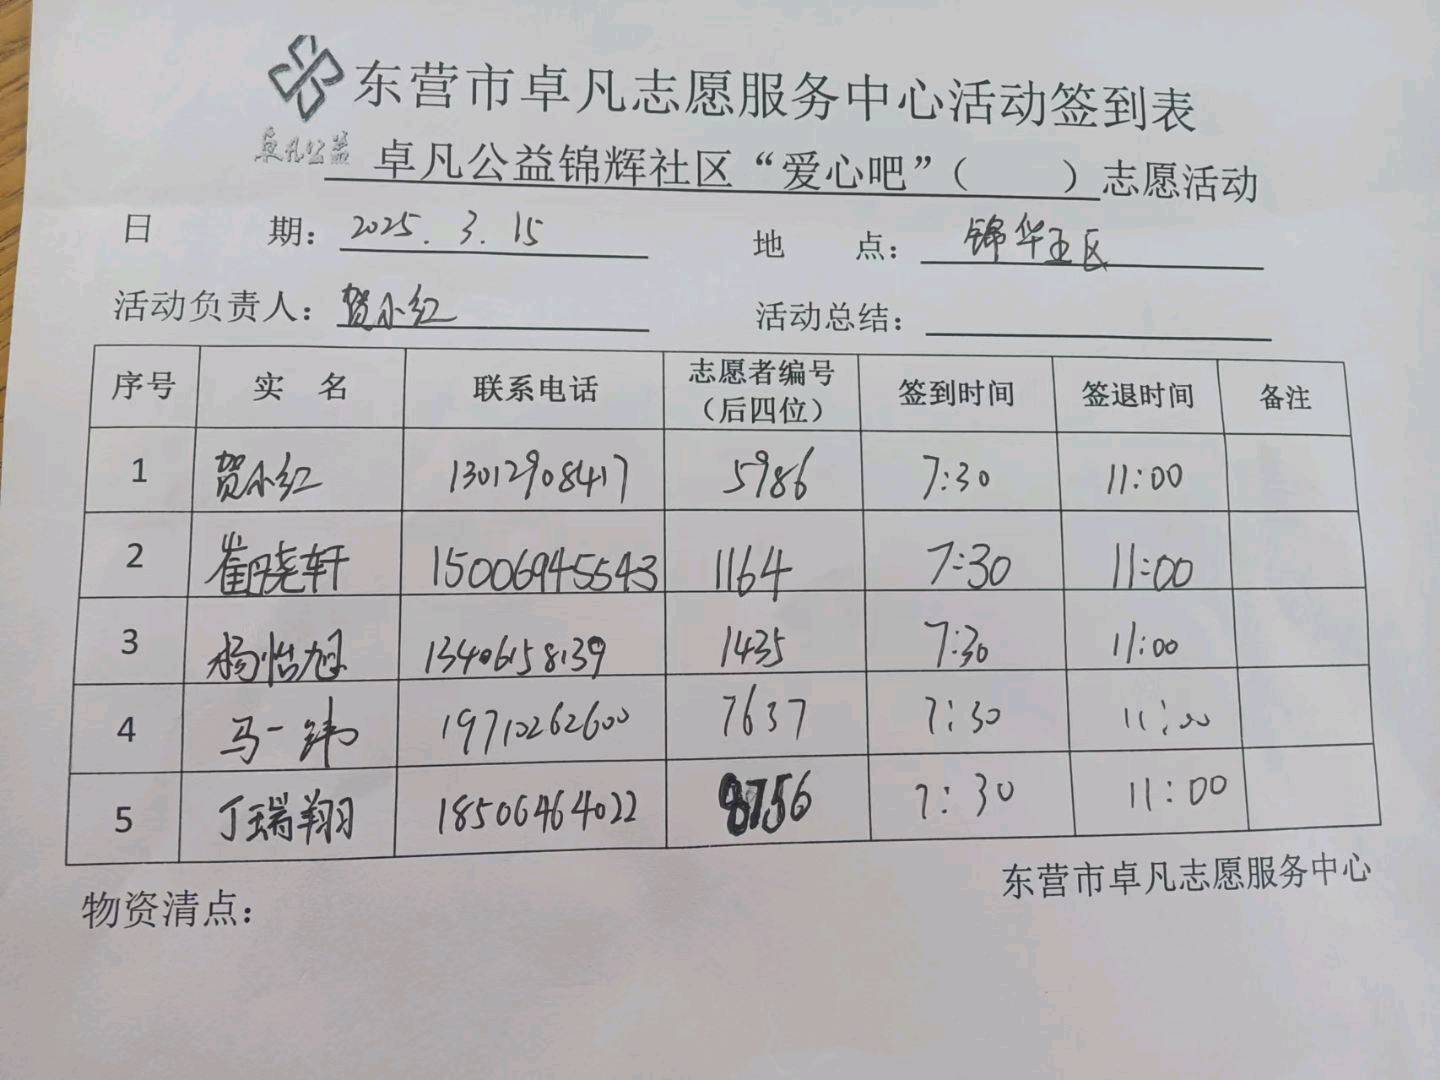 东营市卓凡志愿服务中心活动签到表
卓凡公益
卓凡公益锦辉社区“爱心吧”（　　）志愿活动
日　　期：2025.3.15　　地　　点：锦华五区
活动负责人：贺小红　　活动总结：
序号　实　名　联系电话　志愿者编号（后四位）　签到时间　签退时间　备注
1　贺小红　13012908417　5986　7:30　11:00
2　崔晓轩　15006945543　1164　7:30　11:00
3　杨怡旭　13406158139　1435　7:30　11:00
4　马一纬　19710262600　7637　7:30　11:00
5　丁瑞翔　18506464022　8756　7:30　11:00
东营市卓凡志愿服务中心
物资清点：